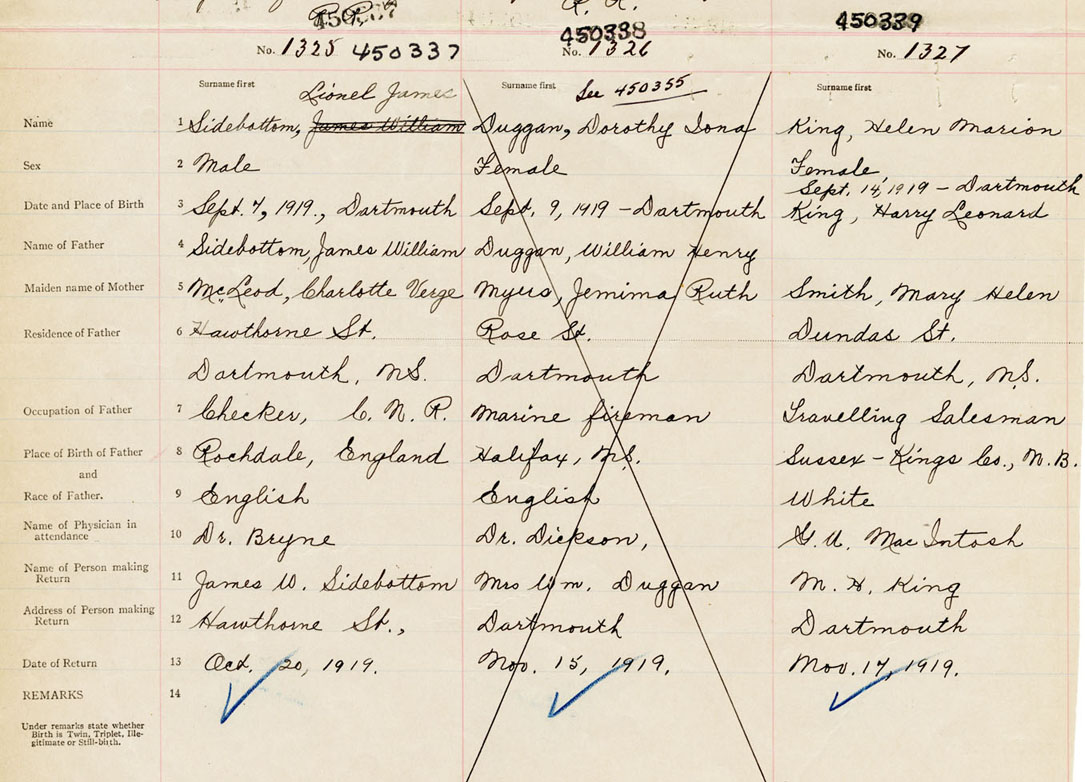 450338
450339
No. 1325 450337
No. 1326
No. 1327
Surname first Lionel James
Surname first See 450355
Surname first
Name 1 Sidebottom, James William Duggan, Dorothy Iona King, Helen Marion
Sex 2 Male Female Female
Sept. 14, 1919 - Dartmouth
Date and Place of Birth 3 Sept. 7, 1919., Dartmouth Sept. 9, 1919 - Dartmouth King, Harry Leonard
Name of Father 4 Sidebottom, James William Duggan, William Henry
Maiden name of Mother 5 McLeod, Charlotte Verge Myers, Jemima Ruth Smith, Mary Helen
Residence of Father 6 Hawthorne St. Rose St. Dundas St.
Dartmouth, N.S. Dartmouth Dartmouth, N.S.
Occupation of Father 7 Checker, C. N. R. Marine fireman Travelling Salesman
Place of Birth of Father 8 Rochdale, England Halifax, N.S. Sussex - Kings Co., N.B.
and
Race of Father. 9 English English White
Name of Physician in
attendance 10 Dr. Bryne Dr. Dickson, G. U. MacIntosh
Name of Person making
Return 11 James W. Sidebottom Mrs Wm. Duggan M. H. King
Address of Person making
Return 12 Hawthorne St., Dartmouth Dartmouth
Date of Return 13 Oct. 20, 1919. Nov. 15, 1919. Nov. 17, 1919.
REMARKS 14
Under remarks state whether
Birth is Twin, Triplet, Ille-
gitimate or Still-birth.